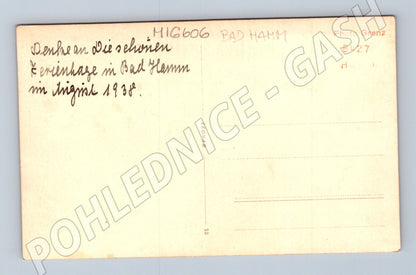 MIG606 BAD HAMM
Denke an Die schönen
Ferientage in Bad Hamm
im August 1938.
Photo Grenz
POHLEDNICE - GASH